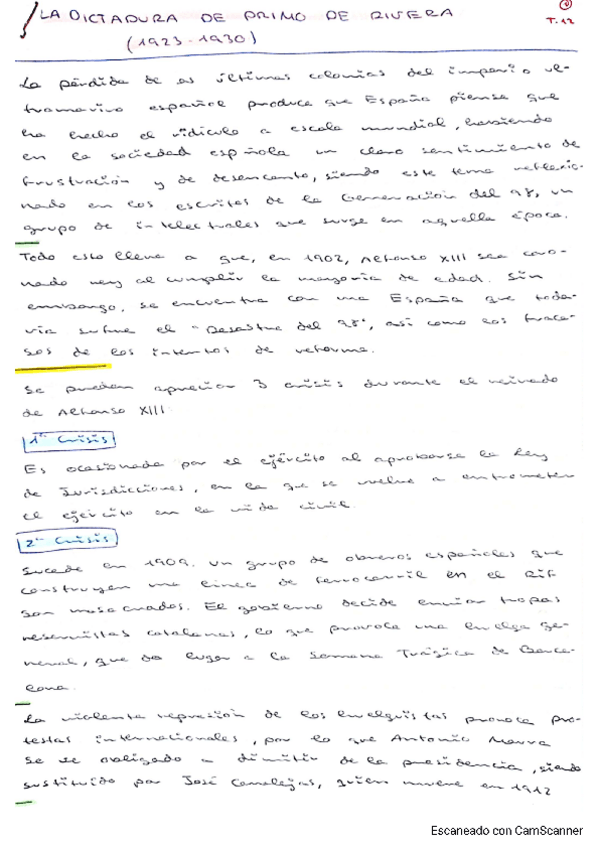 LA DICTADURA DE PRIMO DE RIVERA
(1923-1930)
①
T.12
La pérdida de as últimas colonias del imperio ul-
tramarino español produce que España piense que
ha hecho el ridículo a escala mundial, habiendo
en la sociedad española un claro sentimiento de
frustración y de desencanto, siendo este tema reflexio-
nado en los escritos de la Generación del 98, un
grupo de intelectuales que surge en aquella época.
Todo esto lleva a que, en 1902, Alfonso XIII sea coro-
nado rey al cumplir la mayoría de edad. Sin
embargo, se encuentra con una España que toda-
vía sufre el "Desastre del 98", así como los fraca-
sos de los intentos de reforma.
Se pueden apreciar 3 crisis durante el reinado
de Alfonso XIII
1ª Crisis
Es ocasionada por el ejército al aprobarse la Ley
de Jurisdicciones, en la que se vuelve a entrometer
el ejército en la vida civil.
2ª Crisis
Sucede en 1909. Un grupo de obreros españoles que
construyen una línea de ferrocarril en el Rif
son masacrados. El gobierno decide enviar tropas
reservistas catalanas, lo que provoca una huelga ge-
neral, que da lugar a la Semana Trágica de Barce-
lona.
La violenta represión de los huelguistas provoca pro-
testas internacionales, por lo que Antonio Maura
se ve obligado a dimitir de la presidencia, siendo
sustituido por José Canalejas, quien muere en 1912
Escaneado con CamScanner